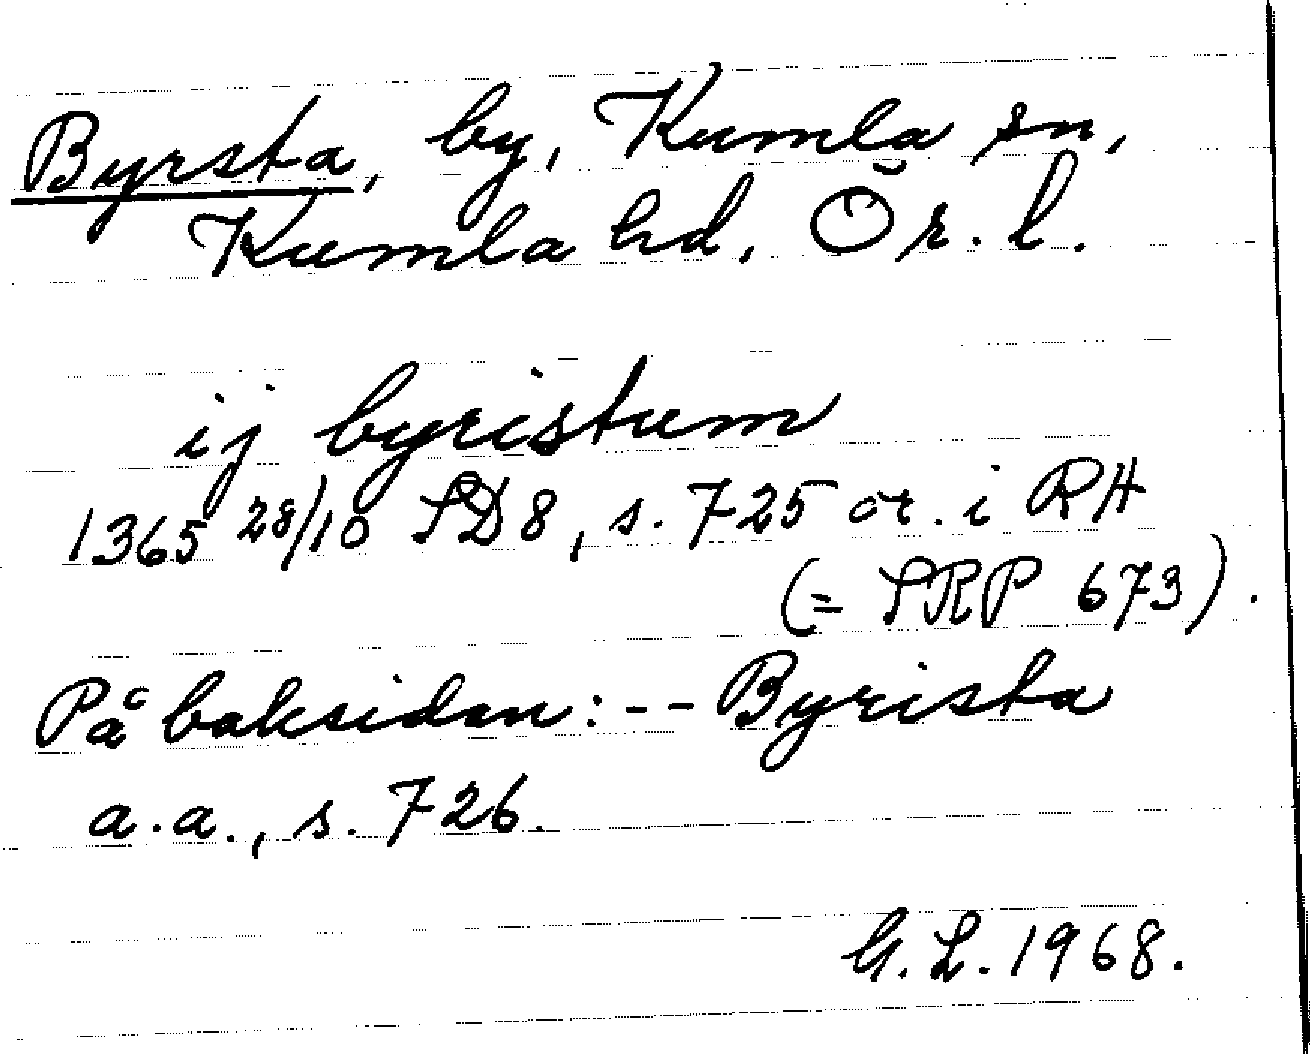 Byrsta, by, Kumla sn,
Kumla hd, Ör. l.
ij byristum
1365 28/10 SD8, s. 725 or. i RH
(= SRP 673).
På baksidan: -- Byrista
a.a., s. 726.
G.L. 1968.